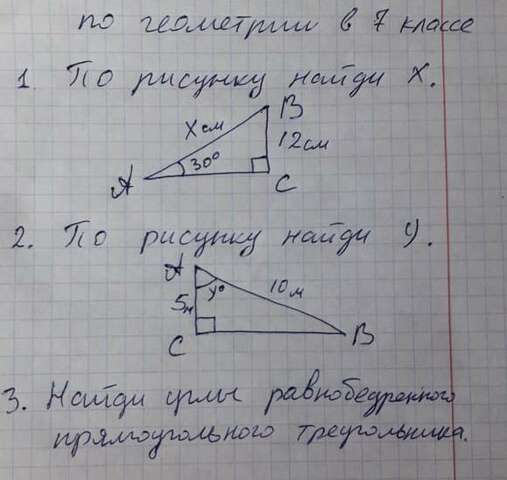 по геометрии в 7 классе
1. По рисунку найди X.
B
X см
12 см
30°
A
C
2. По рисунку найди y.
A
y°
10 м
5 м
C
B
3. Найди углы равнобедренного
прямоугольного треугольника.